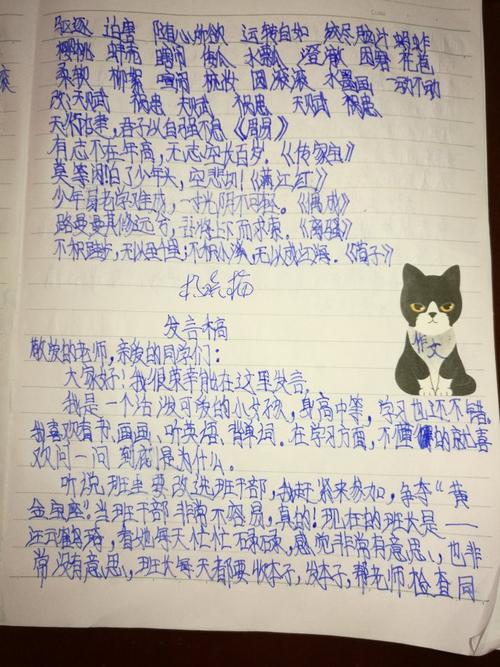 驱逐 追量 随心所欲 运转自如 绞尽脑汁
樱桃 蚌壳 水瓢 澄澈 花苞
柔软 柳絮 梳妆 圆滚滚 水墨画 一动不动
天赋 祸患 天赋 祸患 天赋 祸患
天行健,君子以自强不息《周易》
有志不在年高,无志空长百岁。《传家宝》
莫等闲白了少年头,空悲切!《满江红》
少年易老学难成,一寸光阴不可轻。《偶成》
路曼曼其修远兮,吾将上下而求索。《离骚》
不积跬步,无以至千里;不积小流,无以成江海。《荀子》
发言稿
作文
敬爱的老师,亲爱的同学们:
大家好!我很荣幸能在这里发言。
我是一个活泼可爱的小女孩,身高中等,学习也还不错,
我喜欢看书、画画、听英语、背单词。在学习方面,不懂的就喜
欢问一问到底是为什么。
听说班里要改选班干部,我赶紧来参加,争夺“黄
金宝座”当班干部非常不容易,真的!现在的班长是——
汪,看她每天忙忙碌碌,感觉非常有意思,也非
常没有意思,班长每天都要收本子,发本子,帮老师检查同